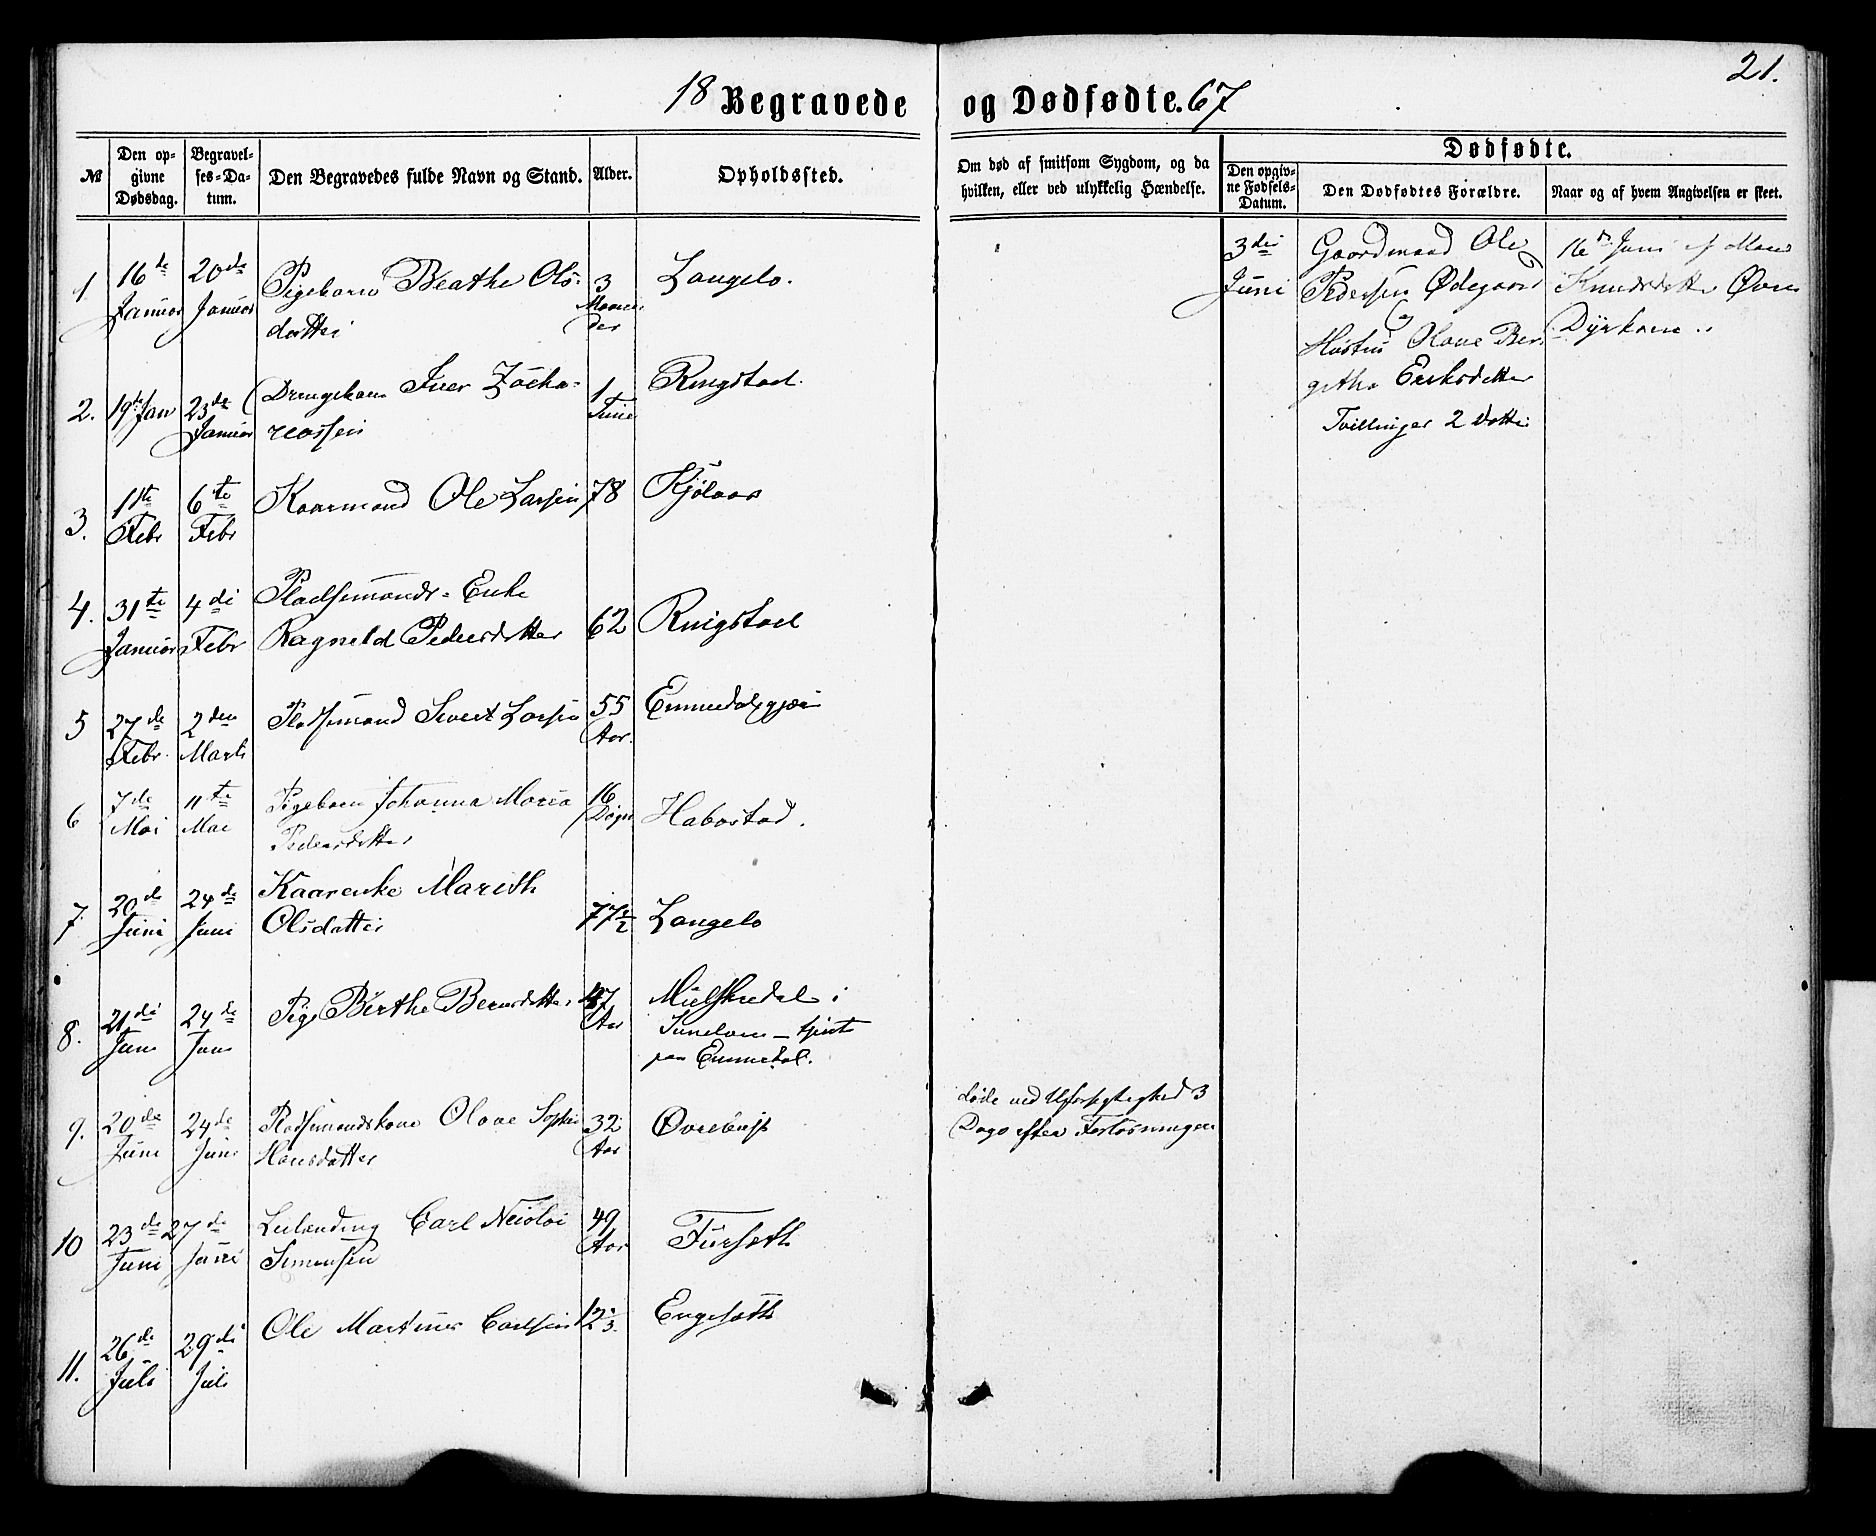 21.
18 Begravede og Dødfødte. 67
№
Den opgivne Dødsdag.
Begravelses-Datum.
Den Begravedes fulde Navn og Stand.
Alder.
Opholdssted.
Om død af smitsom Sygdom, og da
hvilken, eller ved ulykkelig Hændelse.
Dødfødte.
Den opgivne Fødsels-Datum.
Den Dødfødtes Forældre.
Naar og af hvem Angivelsen er skeet.
1. 16de Januar 20de Januar Pigebarn Beathe Ols-
datter 3 Maaneder Langelo.
2. 19de Jan 23de Januar Drengebarn Iver Zacha-
riassen 1 Time Ringstad.
3. 1ste Febr 6te Febr Kaarmand Ole Larsen 78 Kjølaas
4. 31te Januar 4de Febr Pladsemands-Enke
Ragnild Pedersdatter 62 Ringstad
5 27de Febr. 2den Marts Pladsemand Sivert Larsen 55 Aar.
6 7de Mai 11te Mai Pigebarn Johanna Maria
Pedersdatter 16 Døgn Habostad.
7. 20de Juni 24de Juni Kaarenke Marith
Olsdatter 77½ Langelo
8. 21de Juni 24de Juni Pige Berthe Berntsdatter 47 Aar
i
Sunelven - tjente
paa Emmedal.
9. 20de Juni 24de Juni Pladsemandskone Olave Sophie
Hansdatter 32 Aar
døde ved Uforsigtighed 3
Dage efter Forløsningen
10 23de Juni 27de Juni Leilænding Carl Nicolai
Simensen 49 Aar Furseth
11. 26de Juli 29de Juli Ole Martinus Carlsen Engeseth
3die
Juni
Gaardmand Ole
Pedersen Ødegaard
Hustru Olave Ber-
githa Eriksdatter
Tvillinger 2 Døttre
16de Juni af
Knudsdatter Øvre
Dyrkorn.